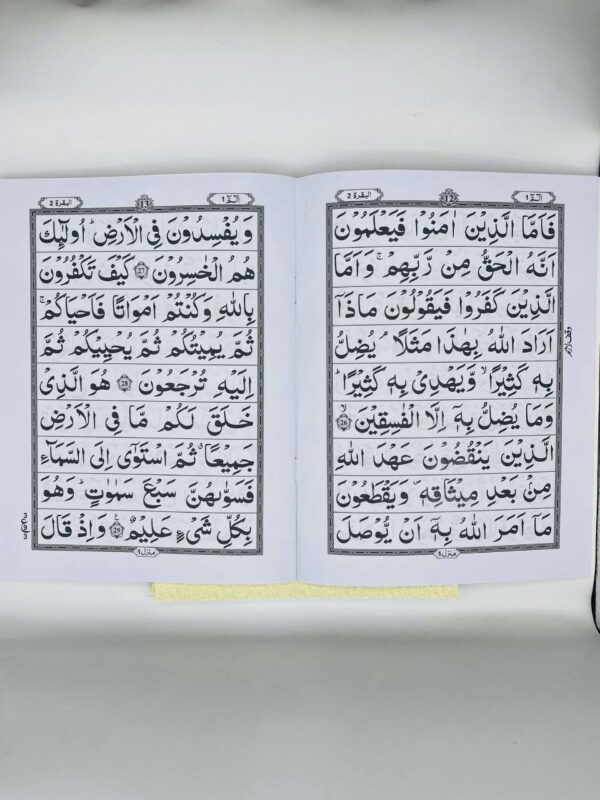 الٓمّٓ ١
12
البقرة 2
فَاَمَّا الَّذِیْنَ اٰمَنُوْا فَیَعْلَمُوْنَ
اَنَّهُ الْحَقُّ مِنْ رَّبِّهِمْ ۚ وَاَمَّا
الَّذِیْنَ كَفَرُوْا فَیَقُوْلُوْنَ مَاذَاۤ
اَرَادَ اللّٰهُ بِهٰذَا مَثَلًا ۘ یُضِلُّ
بِهٖ كَثِیْرًا ۙ وَّیَهْدِیْ بِهٖ كَثِیْرًا ؕ
وَمَا یُضِلُّ بِهٖۤ اِلَّا الْفٰسِقِیْنَ ۙ 26
الَّذِیْنَ یَنْقُضُوْنَ عَهْدَ اللّٰهِ
مِنْۢ بَعْدِ مِیْثَاقِهٖ ۪ وَیَقْطَعُوْنَ
مَاۤ اَمَرَ اللّٰهُ بِهٖۤ اَنْ یُّوْصَلَ
منزل ١
وقف لازم
الٓمّٓ ١
13
البقرة 2
وَ یُفْسِدُوْنَ فِی الْاَرْضِ ؕ اُولٰٓىِٕكَ
هُمُ الْخٰسِرُوْنَ 27 كَیْفَ تَكْفُرُوْنَ
بِاللّٰهِ وَكُنْتُمْ اَمْوَاتًا فَاَحْیَاكُمْ ۚ
ثُمَّ یُمِیْتُكُمْ ثُمَّ یُحْیِیْكُمْ ثُمَّ
اِلَیْهِ تُرْجَعُوْنَ 28 هُوَ الَّذِیْ
خَلَقَ لَكُمْ مَّا فِی الْاَرْضِ
جَمِیْعًا ۗ ثُمَّ اسْتَوٰۤی اِلَی السَّمَآءِ
فَسَوّٰىهُنَّ سَبْعَ سَمٰوٰتٍ ؕ وَهُوَ
بِكُلِّ شَیْءٍ عَلِیْمٌ 29 وَاِذْ قَالَ
منزل ١